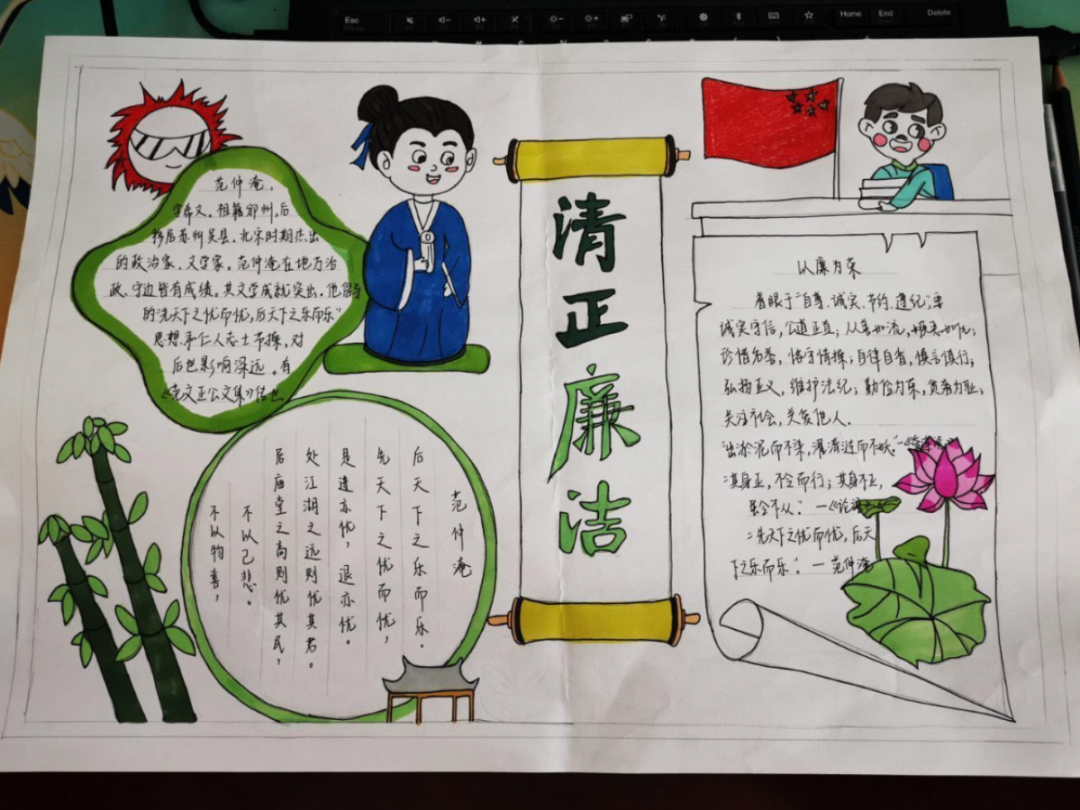 Esc
Home
End
Delete
范仲淹，
字希文。祖籍邠州，后
移居苏州吴县。北宋时期杰出
的政治家、文学家。范仲淹在地方治
政、守边皆有成绩。其文学成就突出。他倡导
的“先天下之忧而忧，后天下之乐而乐”
思想和仁人志士节操，对
后世影响深远。有
《范文正公文集》传世
清正廉洁
范仲淹
后天下之乐而乐。
先天下之忧而忧，
是进亦忧，退亦忧。
处江湖之远则忧其君。
居庙堂之高则忧其民，
不以己悲。
不以物喜，
以廉为荣
着眼于“自尊、诚实、节约、遵纪”；
诚实守信，公道正直；从善如流，嫉恶如仇；
珍惜名誉，恪守情操；自律自省，慎言慎行；
弘扬正义，维护法纪；勤俭为荣，贪奢为耻；
关注社会，关爱他人.
“出淤泥而不染，濯清涟而不妖”
“其身正，不令而行；其身不正，
虽令不从”：—《论语
“先天下之忧而忧，后天
下之乐而乐”：—范仲淹